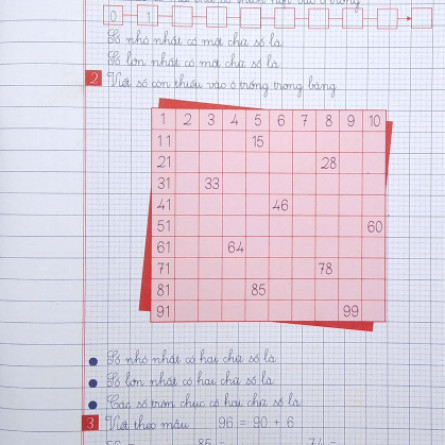 0 1
Số nhỏ nhất có một chữ số là
Số lớn nhất có một chữ số là
2 Viết số còn thiếu vào ô trống trong bảng
1 2 3 4 5 6 7 8 9 10
11 15
21 28
31 33
41 46
51 60
61 64
71 78
81 85
91 99
Số nhỏ nhất có hai chữ số là
Số lớn nhất có hai chữ số là
Các số tròn chục có hai chữ số là
3 Viết theo mẫu 96 = 90 + 6